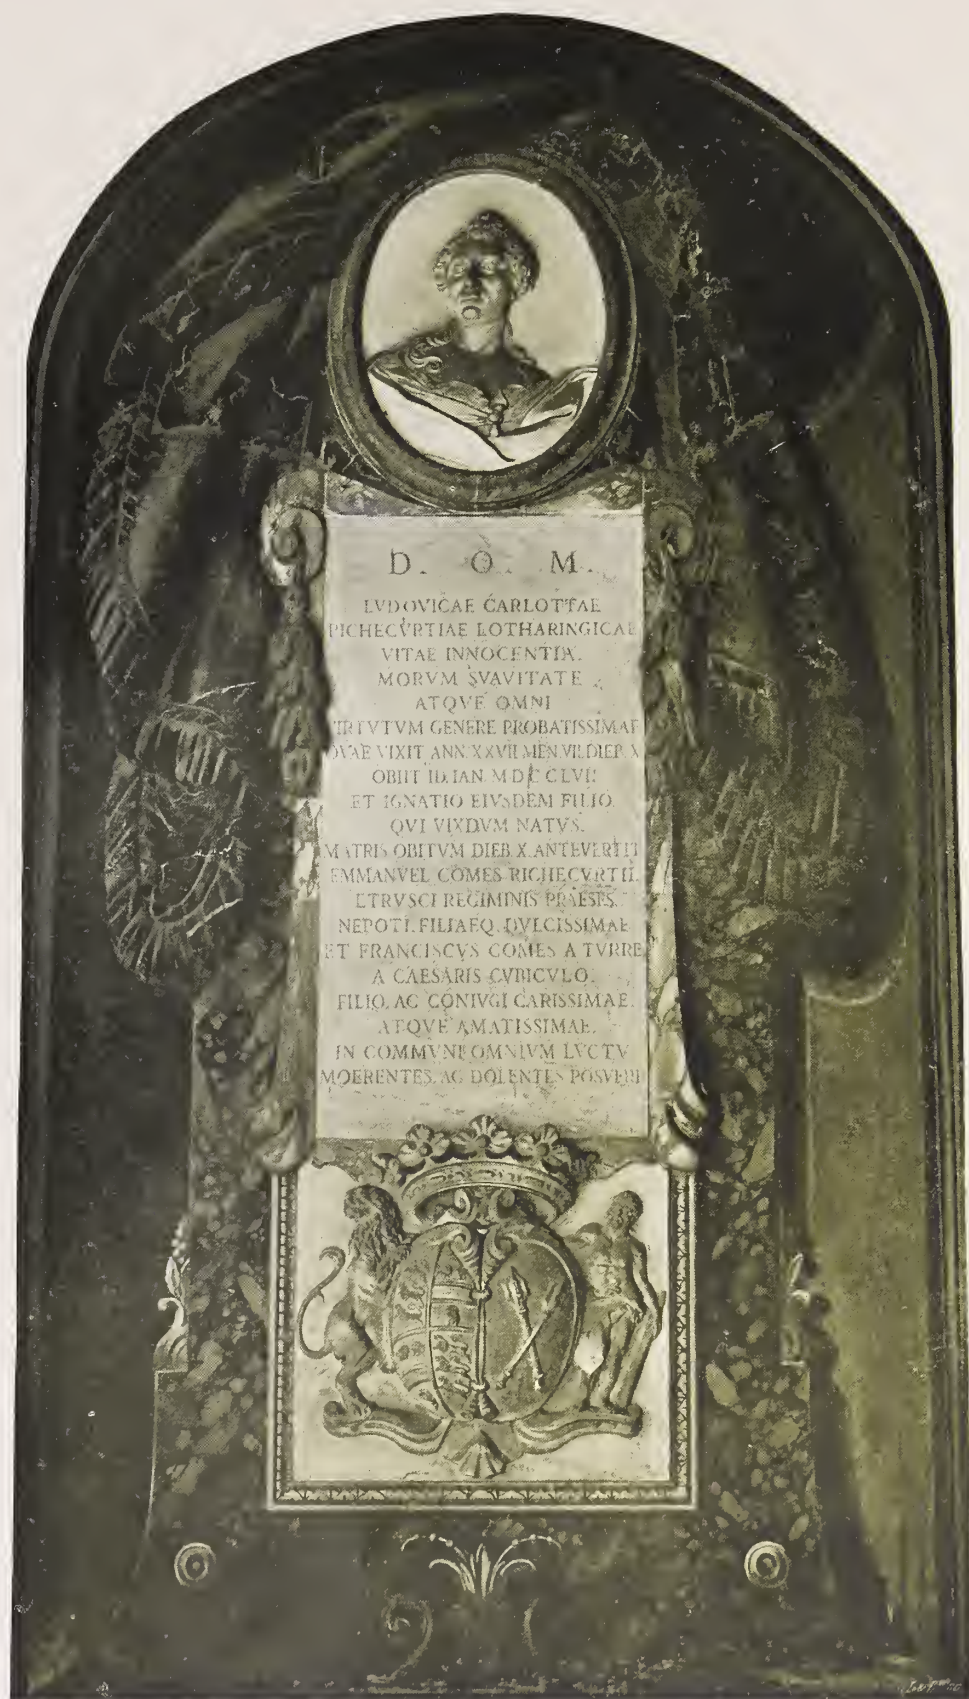 D. O. M.
LVDOVICAE CARLOTTAE
RICHECVRTIAE LOTHARINGICAE
VITAE INNOCENTIA.
MORVM SVAVITATE
ATQVE OMNI
VIRTVTVM GENERE PROBATISSIMAE
QVAE VIXIT ANN. XXVII MEN. VII. DIEB. X
OBIIT ID. IAN. M D C C L V I I
ET IGNATIO EIVSDEM FILIO.
QVI VIXDVM NATVS.
MATRIS OBITVM DIEB. X. ANTEVERTIT
EMMANVEL COMES RICHECVRTII.
ETRVSCI REGIMINIS PRAESES.
NEPOTI. FILIAEQ. DVLCISSIMAE
ET FRANCISCVS COMES A TVRRE
A CAESARIS CVBICVLO.
FILIO. AC CONIVGI CARISSIMAE.
ATQVE AMATISSIMAE.
IN COMMVNI OMNIVM LVCTV
MOERENTES. AC DOLENTES POSVERE